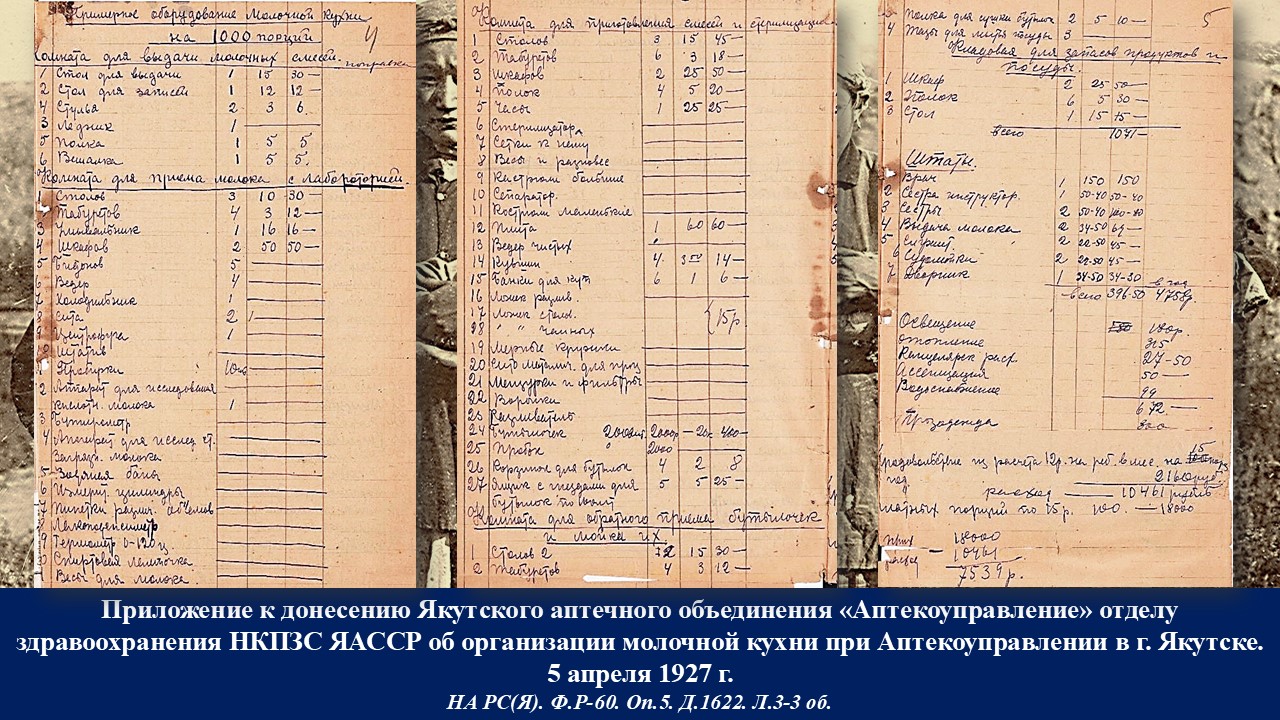 Примерное оборудование молочной кухни
на 1000 порций
4
Комната для выдачи молочных смесей.
1 Стол для выдачи 1 15 30 —
2 Стол для записей 1 12 12 —
4 Стулья 2 3 6.
3 Ледник 1
5 Полка 1 5 5
6 Вешалка 1 5 5.
Комната для приема молока с лабораторией.
1 Столов 3 10 30 —
Табуретов 4 3 12 —
3 Умывальник 1 16 16 —
4 Шкафов 2 50 50 —
5 Бидонов 5
6 Ведер 4
7 Холодильник 1
8 Сита 2
9 Центрофуга 1
Штатив
Пробирки 100
2 Аппарат для исследования
кислотн. молока 1
3 Бутирометр
4 Аппарат для исслед. ст.
загрязн. молока
5 Водяная баня
6 Измерит. цилиндры
7 Пипетки различ. объемов
Лактоденсиметр
9 Термометр 0-120ц
Спиртовая лампочка
Весы для молока.
Комната для приготовления смесей и стерилизации
1 Столов 3 15 45 —
2 Табуретов 6 3 18 —
3 Шкафов 2 25 50 —
4 Полок 4 5 20 —
5 Часы 1 25 25 —
6 Стерилизатор
7 Сетки к нему
8 Весы и разновес
9 Кастрюли большие
10 Сепаратор.
11 Кострюли маленькие
12 Плита 1 60 60 —
13 Ведер чистых
14 Кувшин 4 3 50 14 —
15 Банки для 6 1 6 —
16 Ложек разлив.
17 Ложек столов. 15р
18 " " чайных
19 Мерные кружки
20 Сито металлич. для проц
21 Мензурки и фильтры
22 Воронки
23 Разливатель
24 Бутылочек 2000шт 2000 — 20к 400 —
25 Пробок " 2000
26 Корзинок для бутылок 4 2 8
27 Ящик с гнездами для 5 5 25 —
бутылок
Комната для обратного приема бутылочек
и мойка их
1 Столов 2 2 15 30 —
2 Табуретов 4 3 12 —
5
3 Полка для сушки бутылок 2 5 10 —
4 Тазы для мытья посуды 3
Кладовая для запасов продуктов и
посуды.
1 Шкаф 2 25 50 —
2 Полок 6 5 30 —
3 Стол 1 15 15 —
всего 1041 —
Штаты.
Врач 1 150 150
2 Сестра инструктор. 1 50-40 50-40
3 Сестры 2 50-40 100-80
4 Выдача молока 2 34-50 69 —
5 2 22-50 45 —
6 Судомойки 2 22-50 45 —
7 Дворник 1 34-50 34-50
в год
всего 396-50
Освещение 180р.
Отопление 315
Канцелярск. расх. 27-50
Ассенизация 50 —
Водоснабжение 99
672 —
Прозодежда 300
Продовольствие из расчета 12р. на реб. в мес. на 15
год 2160руб.
расход 10461 рубль
платных порций по 15р. 100. — 18000
18000
10461
7539 р.
Приложение к донесению Якутского аптечного объединения «Аптекоуправление» отделу
здравоохранения НКПЗС ЯАССР об организации молочной кухни при Аптекоуправлении в г. Якутске.
5 апреля 1927 г.
НА РС(Я). Ф.Р-60. Оп.5. Д.1622. Л.3-3 об.